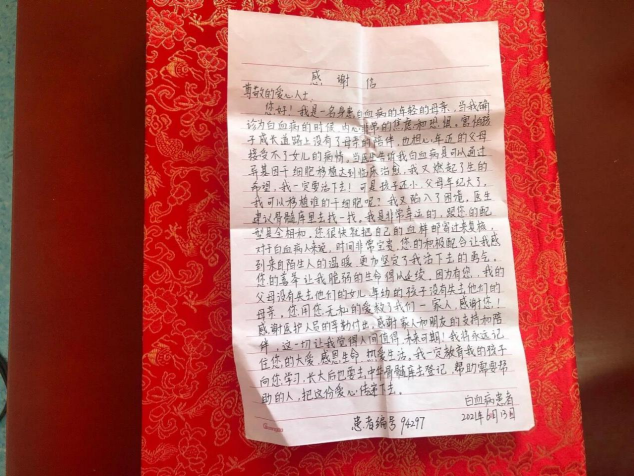 感谢信
尊敬的爱心人士:
您好!我是一名身患白血病的年轻的母亲,当我确
诊为白血病的时候,内心非常的焦虑和恐惧,害怕孩
子成长道路上没有了母亲的陪伴,也担心年迈的父母
接受不了女儿的病情。当医生告诉我白血病是可以通过
异基因干细胞移植达到临床治愈,我又燃起了生的
希望,我一定要活下去!可是孩子还小,父母年纪大了,
我可以移植谁的干细胞呢?我又陷入了困境,医生
建议骨髓库里去找一找。我是非常幸运的,跟您的配
型是全相和,您很快就把自己的血样邮寄过来复核,
对于白血病人来说,时间非常宝贵,您的积极配合让我感
到来自陌生人的温暖,更加坚定了我活下去的勇气。
您的善举让我脆弱的生命得以延续,因为有您,我的
父母没有失去他们的女儿,年幼的孩子没有失去他们的
母亲,您用您无私的爱救了我们一家人,感谢您!
感谢医护人员的辛勤付出,感谢家人和朋友的支持和陪
伴,这一切让我觉得人间值得,未来可期!我将永远记
住您的大爱,感恩生命,热爱生活,我一定教育我的孩子
向您学习,长大后也要去中华骨髓库去登记,帮助需要帮
助的人,把这份爱心传递下去。
白血病患者
患者编号94297
2021年6月13日